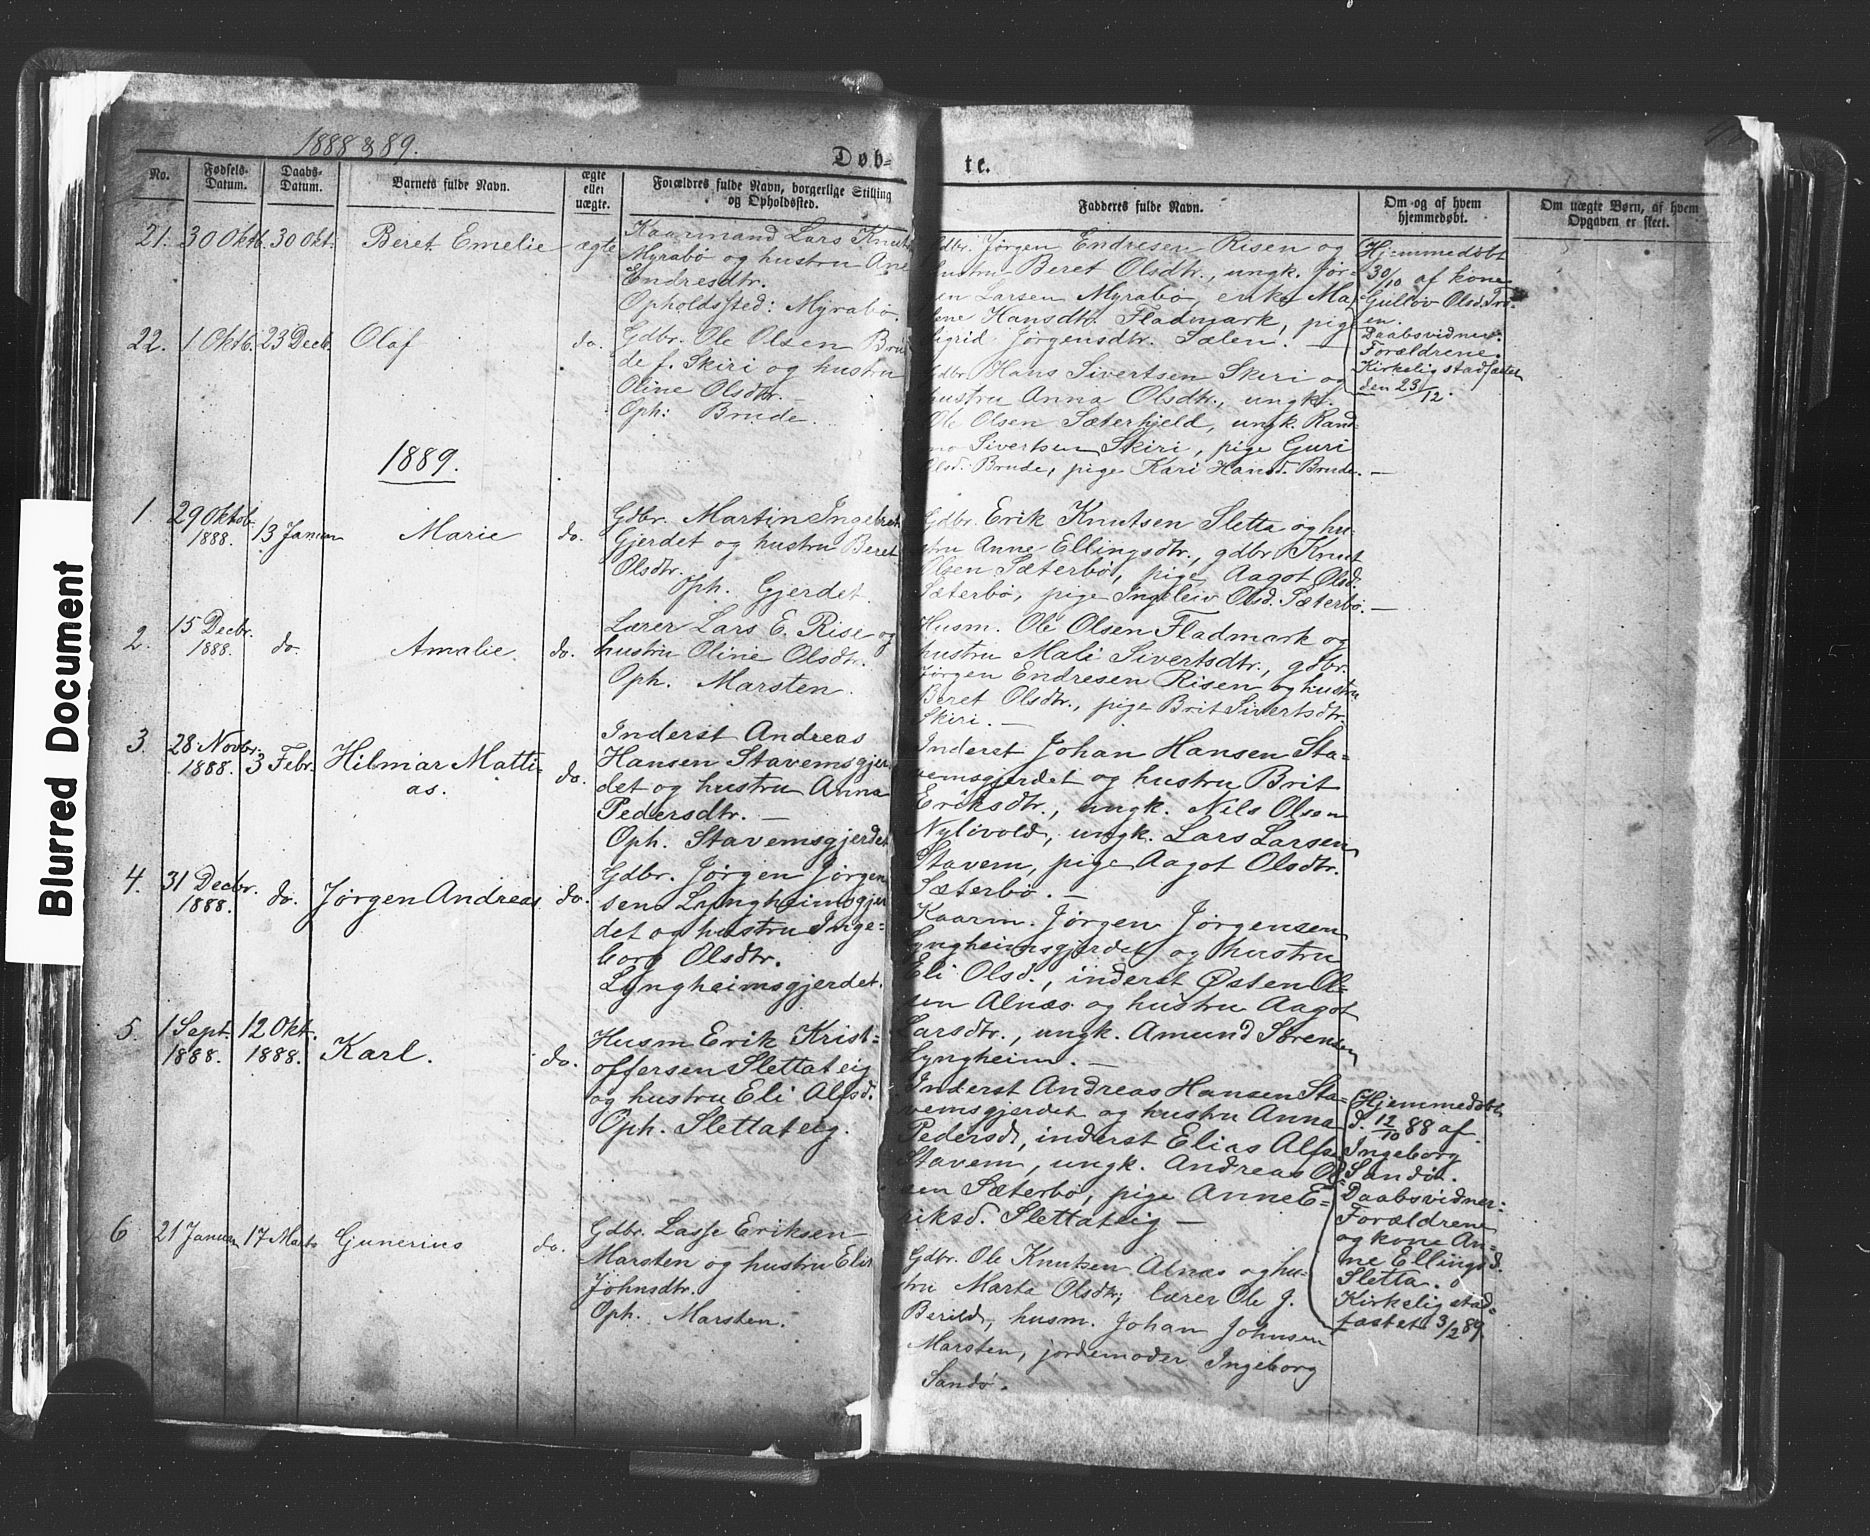 1888 & 89.
Døb=
te.
No.
Fødsels-
Datum.
Daabs-
Datum.
Barnets fulde Navn.
ægte
eller
uægte.
Forældres fulde Navn, borgerlige Stilling
og Opholdssted.
Fadderes fulde Navn.
Om og af hvem
hjemmedøbt.
Om uægte Børn, af hvem
Opgaven er skeet.
21. 30 Oktb. 30 Okt. Beret Emelie ægte
Kaarmand Lars Knuts
Myrabø og hustru Ane
Endresdtr.
Opholdssted: Myrabø.
Gdbr. Jørgen Endresen Risen og
hustru Beret Olsdtr., ungk. Jør-
gen Larsen Myrabø, enke Ma-
lene Hansdtr. Fladmark, pige
Sigrid Jørgensdtr. Sælen. —
Hjemmedøbt
30/10 af kone
Gulløv Olsd.
Daabsvidner:
Forældrene.
Kirkelig stadfæstet
den 23/12.
22. 1 Oktb. 23 Decb. Olaf do.
Gdbr. Ole Olsen Bru-
de f. Skiri og hustru
Oline Olsdtr. —
Oph: Brude.
Gdbr. Hans Sivertsen Skiri og
hustru Anna Olsdtr., ungk.
Ole Olsen Sæterhjeld, ungk. Rand-
mo Sivertsen Skiri, pige Guri
Olsd. Brude, pige Kari Hansd. Brude. —
1889.
1. 29 Oktob. 1888. 13 Januar Marie do.
Gdbr. Martin Ingebret.
Gjerdet og hustru Beret
Olsdtr.
Oph. Gjerdet.
Gdbr. Erik Knutsen Sletta og hu-
stru Anne Ellingsdtr., gdbr. Knut
Olsen Sæterbø, pige Aagot Olsd.
Sæterbø, pige Ingeleiv Olsd. Sæterbø. —
2. 15 Decbr. 1888. do. Amalie. do.
Lærer Lars E. Rise og
hustru Oline Olsdtr.
Oph. Marsten.
Husm. Ole Olsen Fladmark og
hustru Mali Sivertsdtr., gdbr.
Jørgen Endresen Risen og hustru
Beret Olsdtr., pige Brit Sivertsdtr.
Skiri. —
3. 28 Novbr. 1888. 3 Febr. Hilmar Matti-
as. do.
Inderst Andreas
Hansen Stavemsgjer-
det og hustru Anna
Pedersdtr. —
Oph. Stavemsgjerdet
Inderst Johan Hansen Sta-
vemsgjerdet og hustru Brit
Eriksdtr., ungk. Nils Olsen
Nylivold, ungk. Lars Larsen
Stavem, pige Aagot Olsdtr.
Sæterbø. —
4. 31 Decbr. 1888. do. Jørgen Andreas do.
Gdbr. Jørgen Jørgen-
sen Lyngheimsgjer-
det og hustru Inge-
borg Olsdtr.
Lyngheimsgjerdet.
Kaarm. Jørgen Jørgensen
Lyngheimsgjerdet og hustru
Eli Olsd., inderst Østen Ol-
sen Alnæs og hustru Aagot
Larsdtr., ungk. Amund Sørensen
Lyngheim. —
5. 1 Sept. 1888. 12 Okt. 1888. Karl. do.
Husm Erik Krist-
offersen Slettateig
og hustru Eli Alfsd.
Oph. Slettateig.
Inderst Andreas Hansen Sta-
vemsgjerdet og hustru Anna
Pedersd., inderst Elias Alfs.
Stavem, ungk. Andreas Ol-
sen Sæterbø, pige Anne E-
riksd. Slettateig —
Hjemmedøbt
d. 12/10 88 af
Ingeborg
Sandø.
Daabsvidner:
Forældrene
og kone An-
ne Ellingsd.
Sletta.
Kirkelig stad-
fæstet 3/2 89.
6 21 Januar 17 Marts Gunerius do.
Gdbr. Lasse Eriksen
Marsten og hustru Elis
Johnsdtr.
Oph. Marsten.
Gdbr. Ole Knutsen Alnæs og hu-
stru Marta Olsdtr., lærer Ole J.
Berild, husm. Johan Johnsen
Marsten, jordemoder Ingeborg
Sandø.
Blurred Document